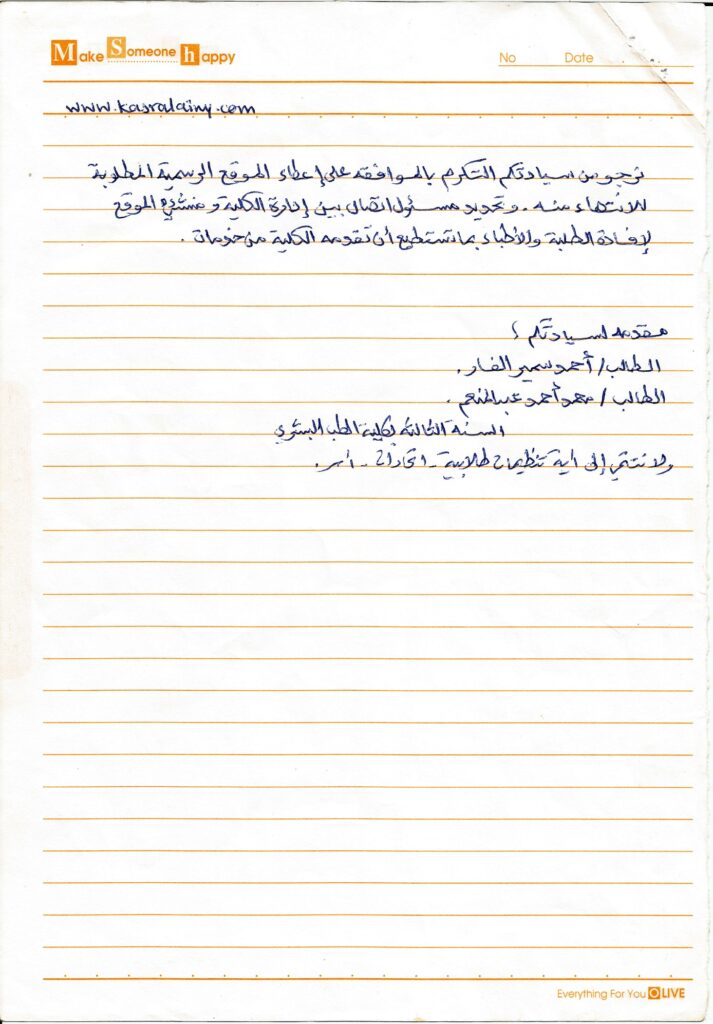 Make Someone happy
No Date
www.kasralainy.com
نرجو من سيادتكم التكرم بالموافقه على إعطاء الموقع الرسمية المطلوبة
للانتهاء منه . وتحديد مسئول اتصال بين إدارة الكلية و منشئي الموقع
لإفادة الطلبة والأطباء بما تستطيع أن تقدمه الكلية من خدمات .
مقدمه لسيادتكم ؛
الطالب / أحمد سمير الفار .
الطالب / محمد أحمد عبدالمنعم .
السنه الثالثه بكلية الطب البشري
ولا ننتمي إلى أية تنظيمات طلابية - اتحادات - أسر .
Everything For You OLIVE